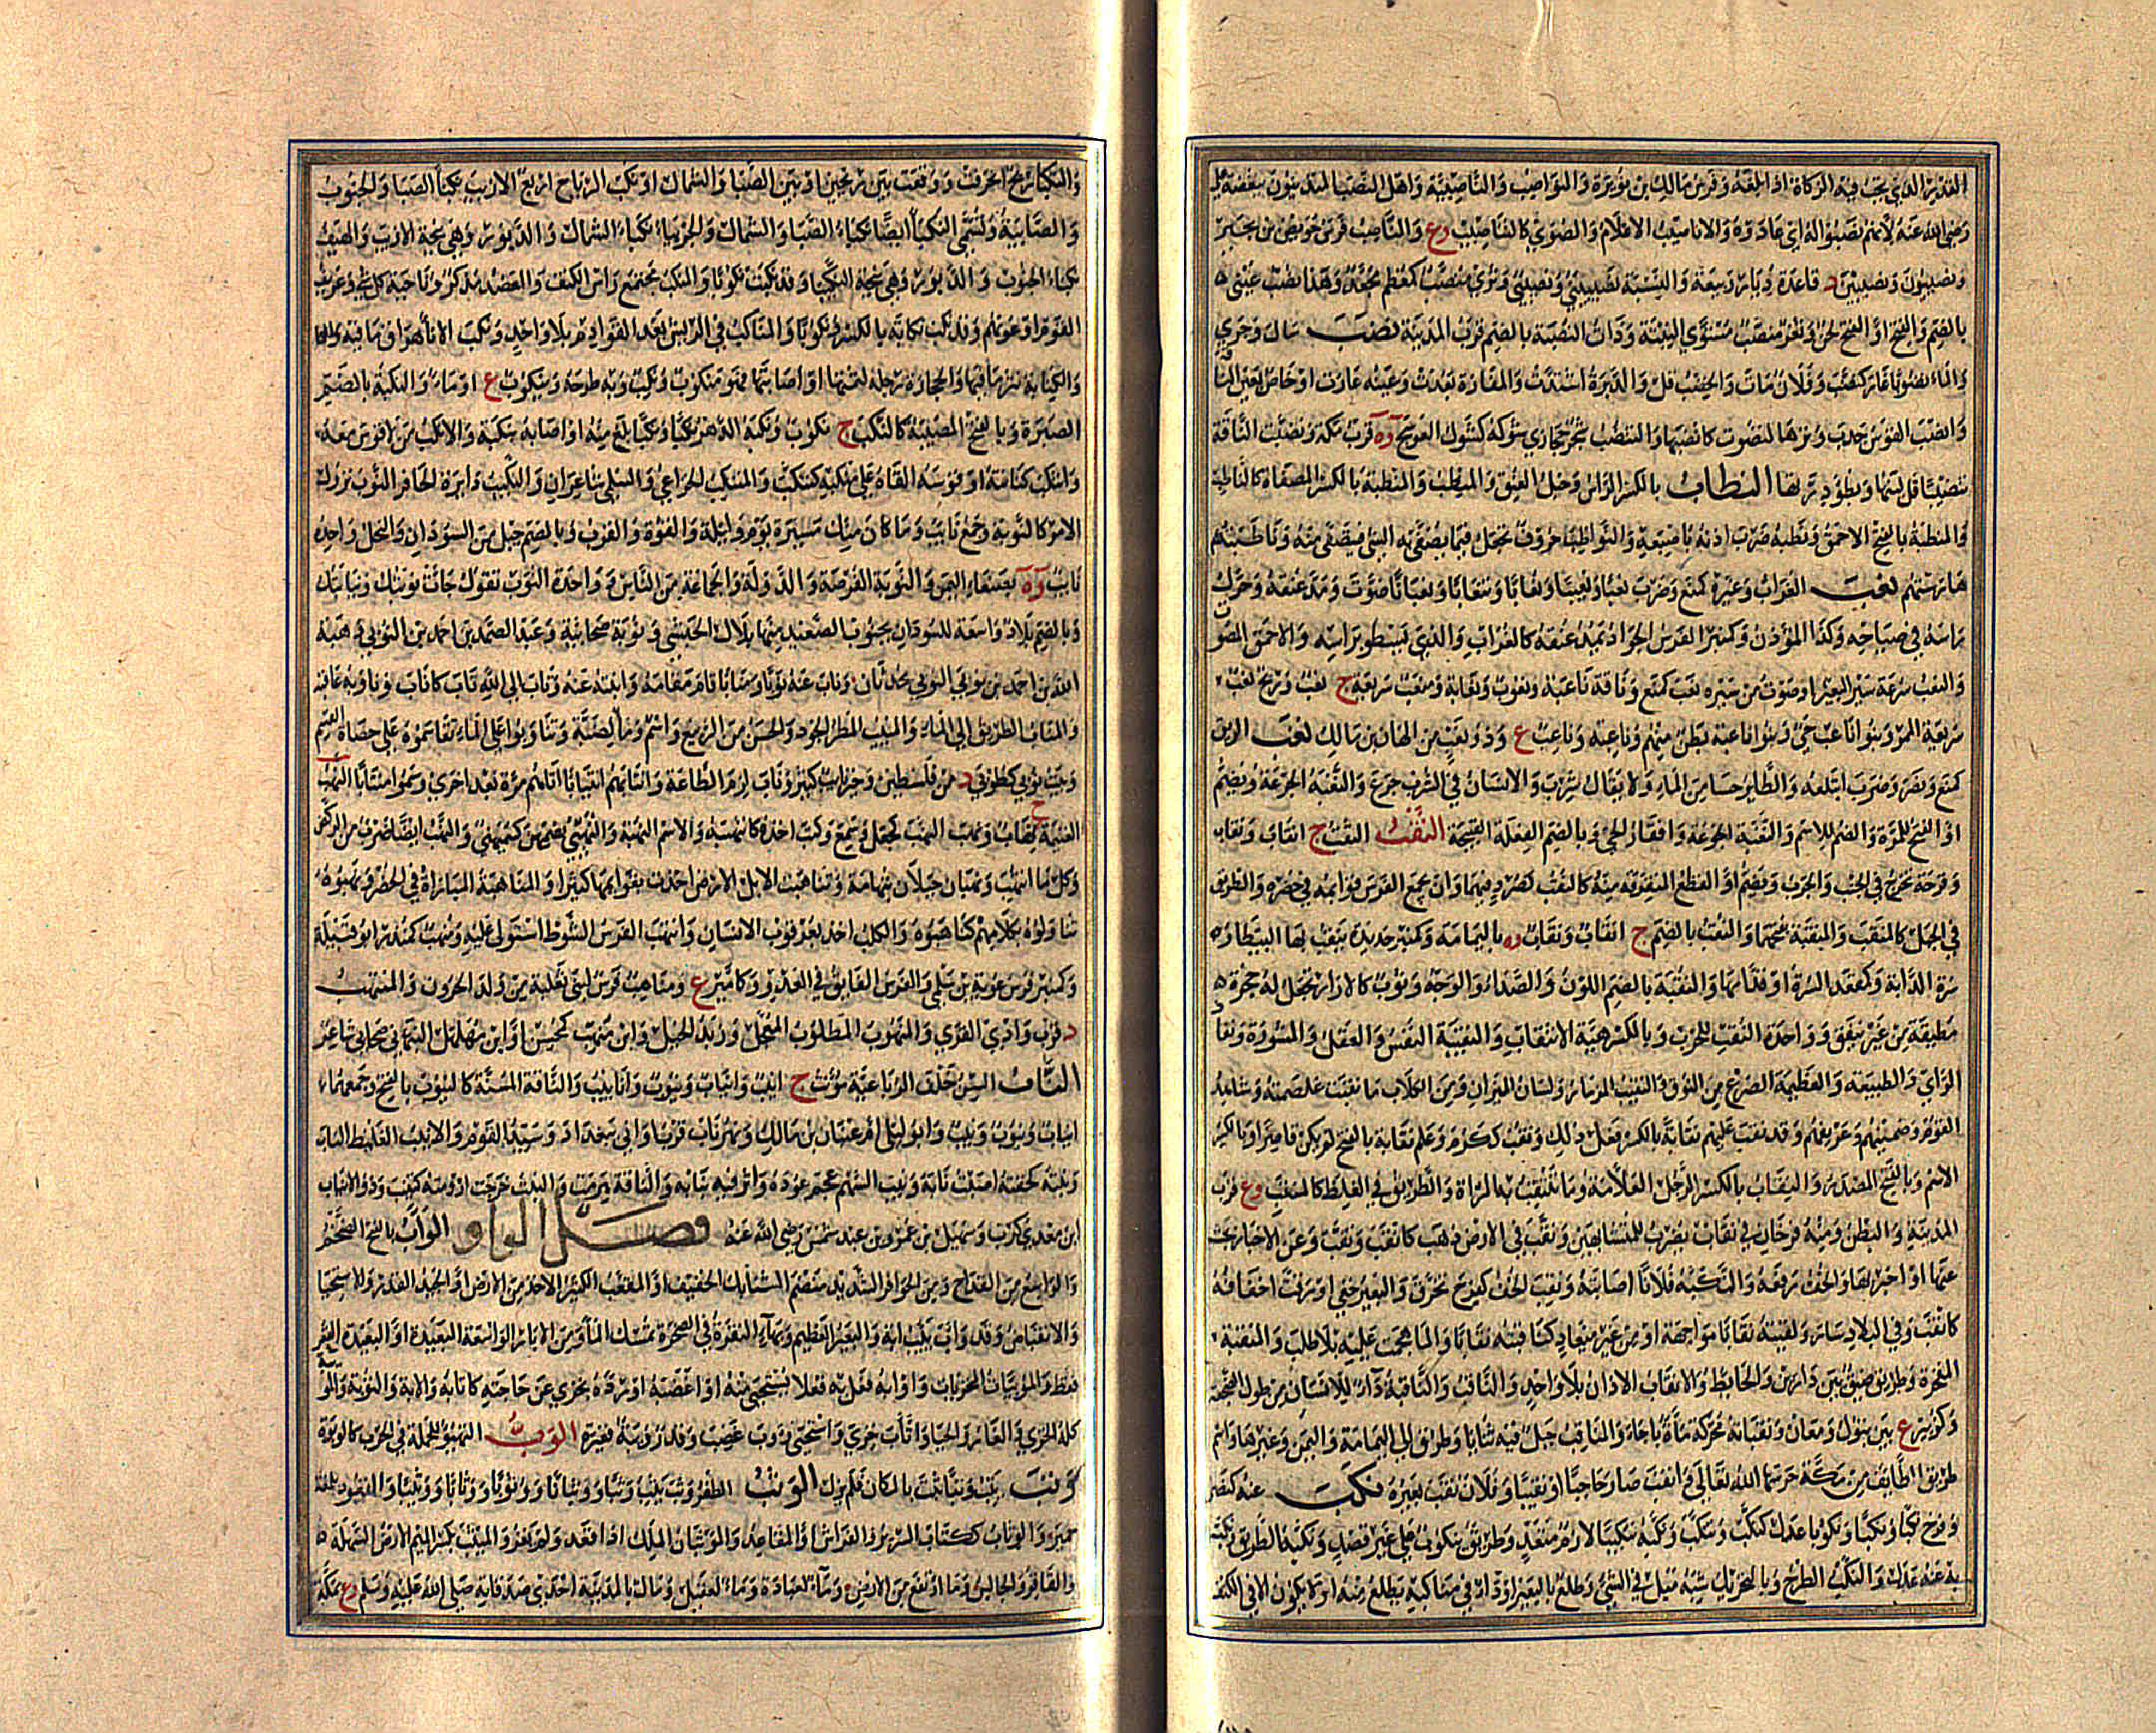 القدر الذي تجب فيه الزكاة اذا بلغه وفرس مالك بن نويرة والنواصب والناصبية واهل النصب المتدينون ببغضة علي
رضي الله عنه لانهم نصبوا له اي عادوه والاناصيب الاعلام والصوى كالتناصيب وع والناصب فرس حويص بن بجير
ونصيبون ونصيبين د قاعدة ديار ربيعة والنسبة نصيبيني ونصيبي وثرى منصب كمعظم مجعد وهذا نصب عيني
بالضم والفتح او الفتح لحن وثغر منصب مستوي النبتة وذات النصب بالضم قرب المدينة نضب سال وجرى
والماء نضوبا غار كنضب وفلان مات والخصب قل والدبرة اشتدت والمفازة بعدت وعينه غارت او خاص بعين الناقة
وانضب القوس جذب وترها لتصوت كانبضها والتنضب شجر حجازي شوكه كشوك العوسج وة قرب مكة ونضبت الناقة
تنضيبا قل لبنها وبطؤ درتها النطاب بالكسر الراس وحبل العنق والمنطب والمنطبة بالكسر المصفاة كالناطب
والمنطبة بالفتح الاحمق ونطبه ضرب اذنه باصبعه والنواطب خروق تجعل فيما يصفى به الشئ فيتصفى منه وناطبتهم
هارستهم نعب الغراب وغيره كمنع وضرب نعبا ونعيبا ونعابا وتنعابا ونعبانا صوت ومد عنقه وحرك
راسه في صياحه وكذا المؤذن وكمنبر الفرس الجواد يمد عنقه كالغراب والذي يسطو براسه والاحمق المصوت
والنعب سرعة سير البعير او ضرب من سيره نعب كمنع وناقة ناعبة ونعوب ونعابة ومنعب سريعة ج نعب وريح نعب
سريعة المر وبنو ناعب حي وبنو ناعبة بطن منهم وناعبة وناعب ع وذو نعب من الهان بن مالك نغب الريق
كمنع ونصر وضرب ابتلعه والطاير حسا من الماء ولا يقال شرب والانسان في الشرب جرع والنغبة الجرعة ويضم
او الفتح للمرة والضم للاسم والنغبة الجوعة واقفار الحي وبالضم الفعلة القبيحة النقب الثقب ج انقاب ونقاب
وقرحة تخرج في الجنب والجرب ويضم او القطع المتفرقة منه كالنقب كصرد فيهما وان يجمع الفرس قوايمه في حضره والطريق
في الجبل كالمنقب والمنقبة بفتحهما والنقب بالضم ج انقاب ونقاب وة باليمامة وكمنبر حديدة ينقب بها البيطار
سرة الدابة وكمقعد السرة او قدامها والنقبة بالضم اللون والصدا والوجه وثوب كالازار تجعل له حجزة
مطيفة من غير نيفق وواحدة النقب للجرب وبالكسر هيئة الانتقاب والنقيبة النفس والعقل والمشورة ونفاذ
الراي والطبيعة والعظيمة الضرع من النوق والنقيب المزمار ولسان الميزان ومن الكلاب ما نقبت غلصمته وشاهد
القوم وضمينهم وعريفهم وقد نقب عليهم نقابة بالكسر فعل ذلك ونقب ككرم وعلم نقابة بالفتح لم يكن فصار او بالكسر
الاسم وبالفتح المصدر والنقاب بالكسر الرجل العلامة وما تنتقب به المراة والطريق في الغلظ كالمنقب وع قرب
المدينة والبطن ومنه فرخان في نقاب يضرب للمتشابهين ونقب في الارض ذهب كانقب ونقب وعن الاخبار بحث
عنها او اخبر بها والخف رقعه والنكبة فلانا اصابته ونقب الخف كفرح تخرق والبعير حفي او رقت اخفافه
كانقب وفي البلاد سار ولقيته نقابا مواجهة او من غير ميعاد كناقبته نقابا والماء هجمت عليه بلا طلب والمنقبة
المفخرة وطريق ضيق بين دارين والحائط والانقاب الاذان بلا واحد والناقب والناقبة داء للانسان من طول الضجعة
وكزبير ع بين تبوك ومعان ونقبانة محركة ماءة باجاء والمناقب جبل فيه ثنايا وطرق الى اليمامة واليمن وغيرها واسم
طريق الطايف من مكة حرسها الله تعالى وانقب صار حاجبا او نقيبا وفلان نقب بعيره نكب عنه كنصر
وفرح نكبا ونكبا ونكوبا عدل كنكب وتنكب ونكبه تنكيبا لازم متعد وطريق ينكوب على غير قصد ونكبه الطريق ونكب
به عنه عدل والنكب الطرح وبالتحريك شبه ميل في الشئ وظلع بالبعير او داء في مناكبه يظلع منه او لا يكون الا في الكتف
والنكباء ريح انحرفت ووقعت بين ريحين او بين الصبا والشمال او نكب الرياح اربع الازيب نكباء الصبا والجنوب
والصابية وتسمى النكيباء ايضا نكباء الصبا والشمال والجربياء نكباء الشمال والدبور وهي نيحة الازيب والهيف
نكباء الجنوب والدبور وهي نيحة النكيباء وقد نكبت نكوبا والمنكب مجتمع راس الكتف والعضد مذكر وناحية كل شئ وعريف
القوم او عونهم وقد نكب نكابة بالكسر ونكوبا والمناكب في الريش بعد القوادم بلا واحد ونكب الاناء هراق ما فيه
والكنانة نثر ما فيها والحجارة رجله لثمتها او اصابتها فهو منكوب ونكب وبه طرحه وينكوب ع او ماء والنكبة بالضم
الصبرة وبالفتح المصيبة كالنكب ج نكوب ونكبه الدهر نكبا ونكبا بلغ منه او اصابه بنكبة والانكب من لا قوس معه
وانتكب كنانته او قوسه القاه على منكبه كتنكب والمتنكب الخزاعي والسلمي شاعران والنكيب دايرة الحافر النوب نزول
الامر كالنوبة وجمع نايب وما كان منك مسيرة يوم وليلة والقوة والقرب وبالضم جيل من السودان والنحل واحده
نايب وة بصنعاء اليمن والنوبة الفرصة والدولة والجماعة من الناس وواحدة النوب تقول جاءت نوبتك ونيابتك
وبالضم بلاد واسعة للسودان بجنوب الصعيد منها بلال الحبشي ونوبة صحابية وعبد الصمد بن احمد بن النوبي وهبة
الله بن احمد بن نوبي النوبي محدثان وناب عنه نوبا ومنابا قام مقامه وانبته عنه وناب الى الله تاب كاناب وناوبه عاقبه
والمناب الطريق الى الماء والمنيب المطر الجود والحسن من الربيع واسم وماء لضبة وتناوبوا على الماء تقاسموه على حصاة القسم
وبيت نوبى كطوبى د من فلسطين وخير نايب كثير وناب لزم الطاعة وانتابهم انتيابا اتاهم مرة بعد اخرى وسموا منتابا النهب
الغنيمة ج نهاب ونهب النهب كجعل وسمع وكتب اخذه كانتهبه والاسم النهبة والنهبى بضمهن كسميهى والنهب ايضا ضرب من الركض
وكل ما انتهب ونهبان جبلان بتهامة وتناهبت الابل الارض اخذت بقوائمها كثيرا والمناهبة المباراة في الحضر ونهبوه
تناولوه بكلامهم كناهبوه والكلب اخذ بعرقوب الانسان وانتهب الفرس الشوط استولى عليه ومنهب كمنذر ابو قبيلة
وكمنبر فرس غوية بن سلمي والفرس الفائق في العدو وكامير ع ومناهب فرس لبني ثعلبة من ولد الحرون والمنتهب
د قرب وادي القرى والمنهوب المطلوب المعجل وزيد الخيل وابن منهب كمحسن او ابن مهلهل النبهاني صحابي شاعر
الناب السن خلف الرباعية مؤنث ج انيب وانياب ونيوب واناييب والناقة المسنة كالنيوب بالفتح وجمعهما
انياب ونيوب ونيب وابو ليلى ام عتبان بن مالك ونهر ناب قرب اواني ببغداد وسيد القوم والانيب الغليظ الناب
ونبته كخفته اصبت نابه ونيب السهم عجم عوده واثر فيه بنابه والناقة هرمت والنبت خرجت ارومته كتنيب وذو الانياب
ابن معدي كرب وسهيل بن عمرو بن عبد شمس رضي الله عنه فصل الواو الواب بالفتح الضخم
والواسع من القداح ومن الحوافر الشديد منضم السنابك الخفيف او المقعب الكثير الاخذ من الارض او الجيد القدر والاستحياء
والانقباض وقد واب يئب ابة والبعير العظيم وبهاء النقرة في الصخرة تمسك الماء ومن الابار الواسعة البعيدة او البعيدة القعر
فقط والموئبات المخزيات واوابه فعل به فعلا يستحيى منه او اغضبه او رده بخزي عن حاجته كاتابه والابة والتؤبة والموئبة
كله الخزي والعار والحياء واتاب خزي واستحيى ووئب غضب وقدر وئيبة قعيرة الوب التهيؤ للحملة في الحرب كالوبوبة
وتب يتب وتبا ثبت بالمكان فلم يزل الوثب الطفر وثب يثب وثبا ووثبانا ووثوبا ووثابا ووثيبا والقعود بلغة
حمير والوثاب ككتاب السرير والفراش او المقاعد والموثبان الملك اذا قعد ولم يغز والميثب بكسر الميم الارض السهلة
والقافز والجالس وما ارتفع من الارض وماء لعبادة وماء لعقيل ومال بالمدينة احدى صدقاته صلى الله عليه وسلم وع بمكة